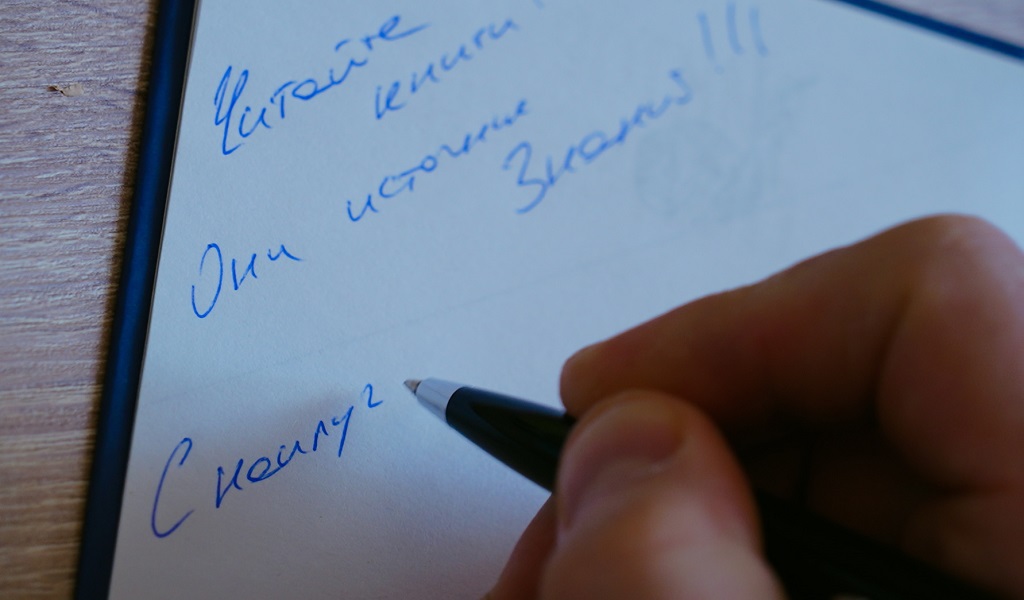 Читайте книги!
Они источник Знаний!!!
С наилуч